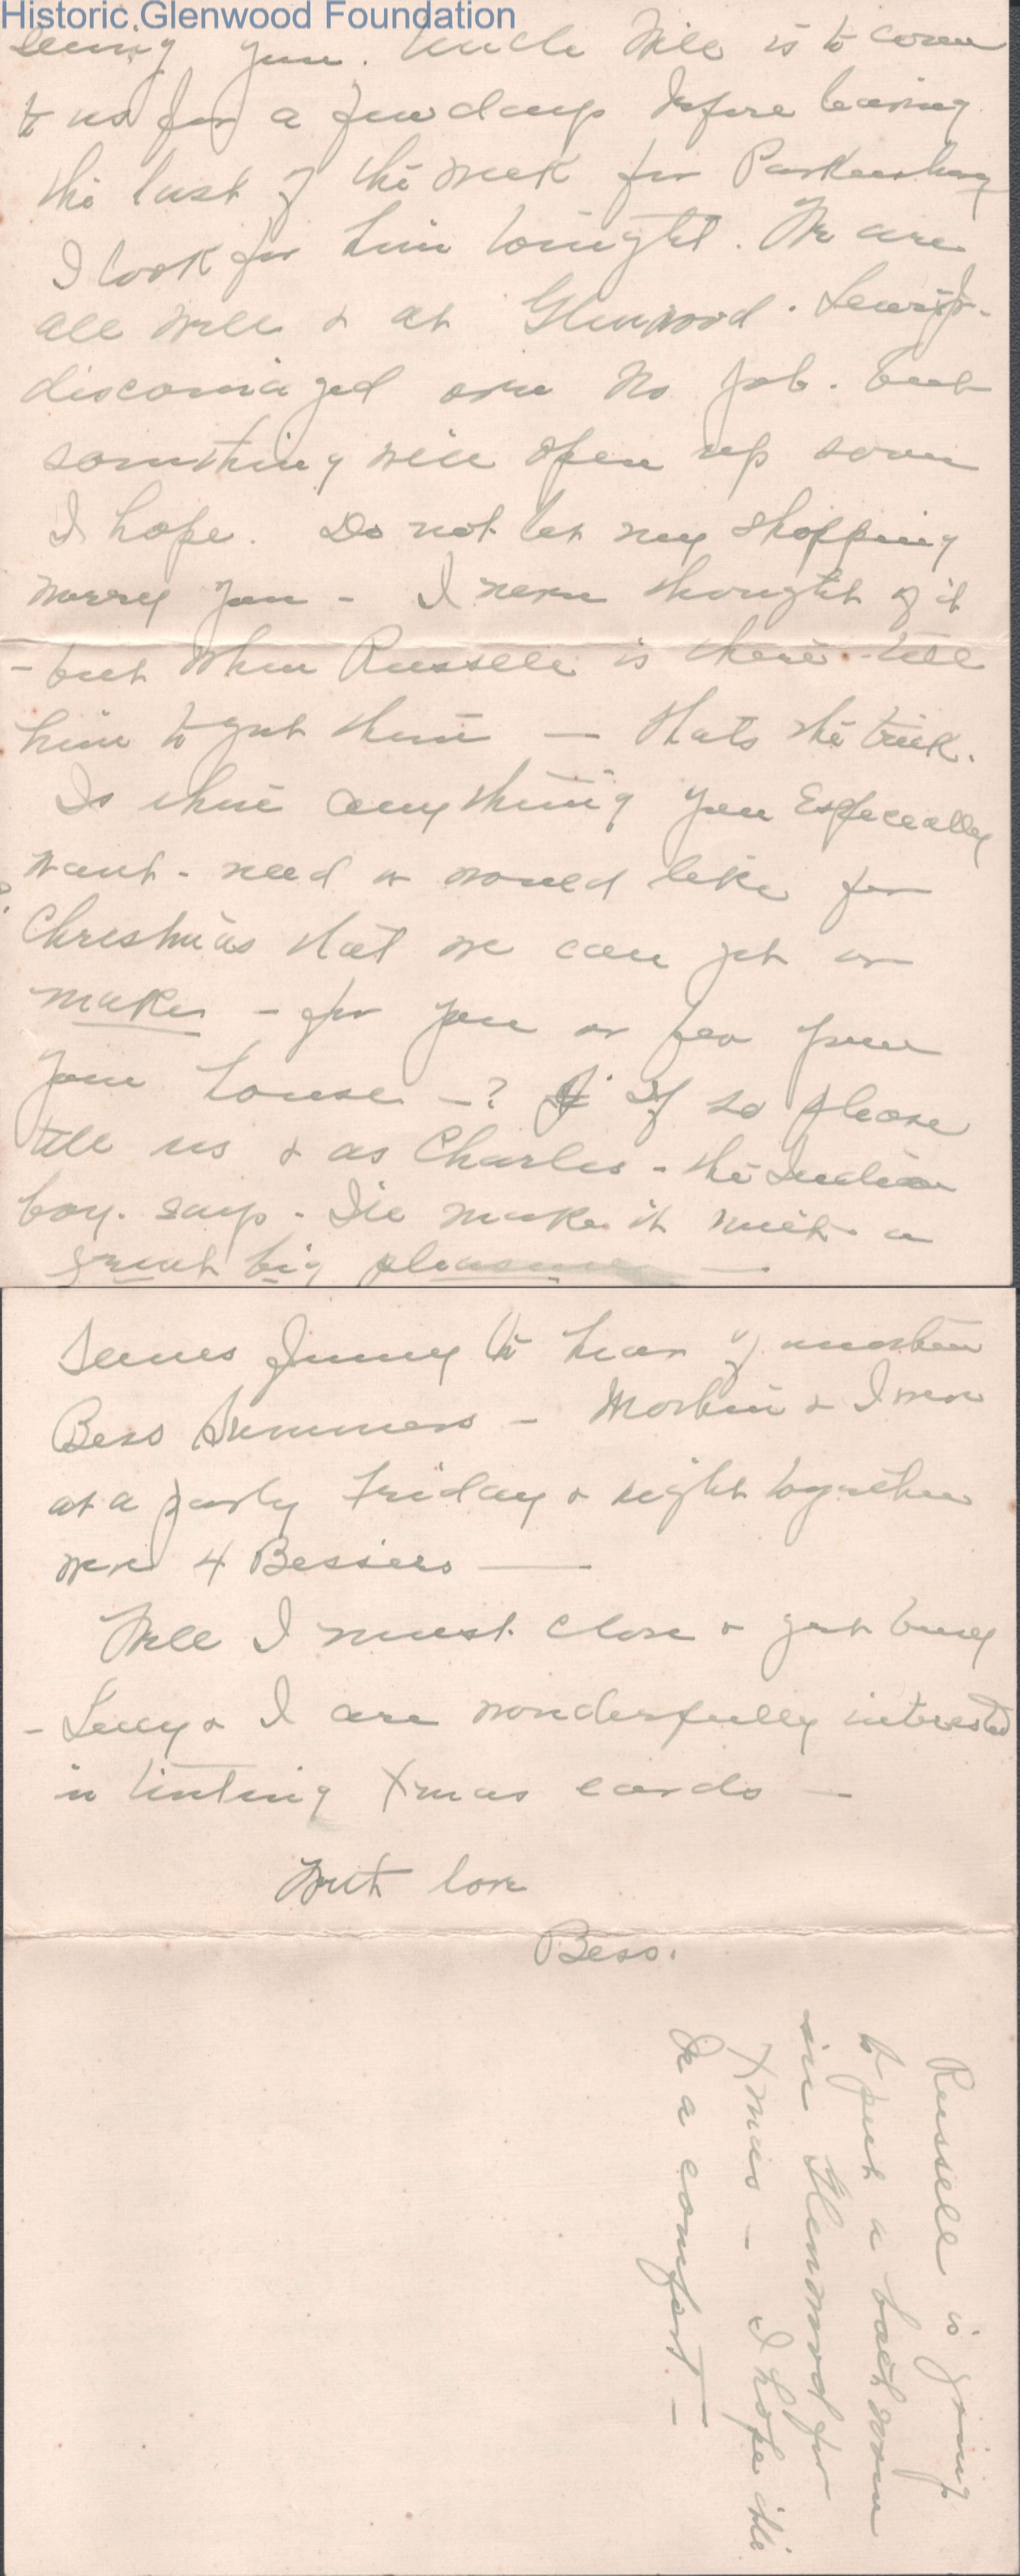 Historic Glenwood Foundation
seeing you. Uncle Will is to come
to us for a few days before leaving
the last of the week for Parkersburg
I look for him tonight. We are
all well & at Glenwood. Lewis Jr.
discouraged over no job. but
something will open up soon
I hope. Do not let my shopping
worry you - I never thought of it
- but when Russell is there - tell
him to get them — thats the trick.
Is there anything you Especially
want - need or would like for
Christmas that we can get or
make - for you or for your
your house - ? If so please
tell us & as Charles - the Indian
boy. says - I'll make it with a
great big pleasure —
Seems funny to hear of another
Bess Summers - & I were
at a party Friday & right together
were 4 Bessies —
Well I must close & get busy
- Lucy & I are wonderfully interested
in tinting Xmas cards —
With love
Bess.
Russell is going
to put a bath room
in Glenwood for
Xmas - I hope it'll
be a comfort -